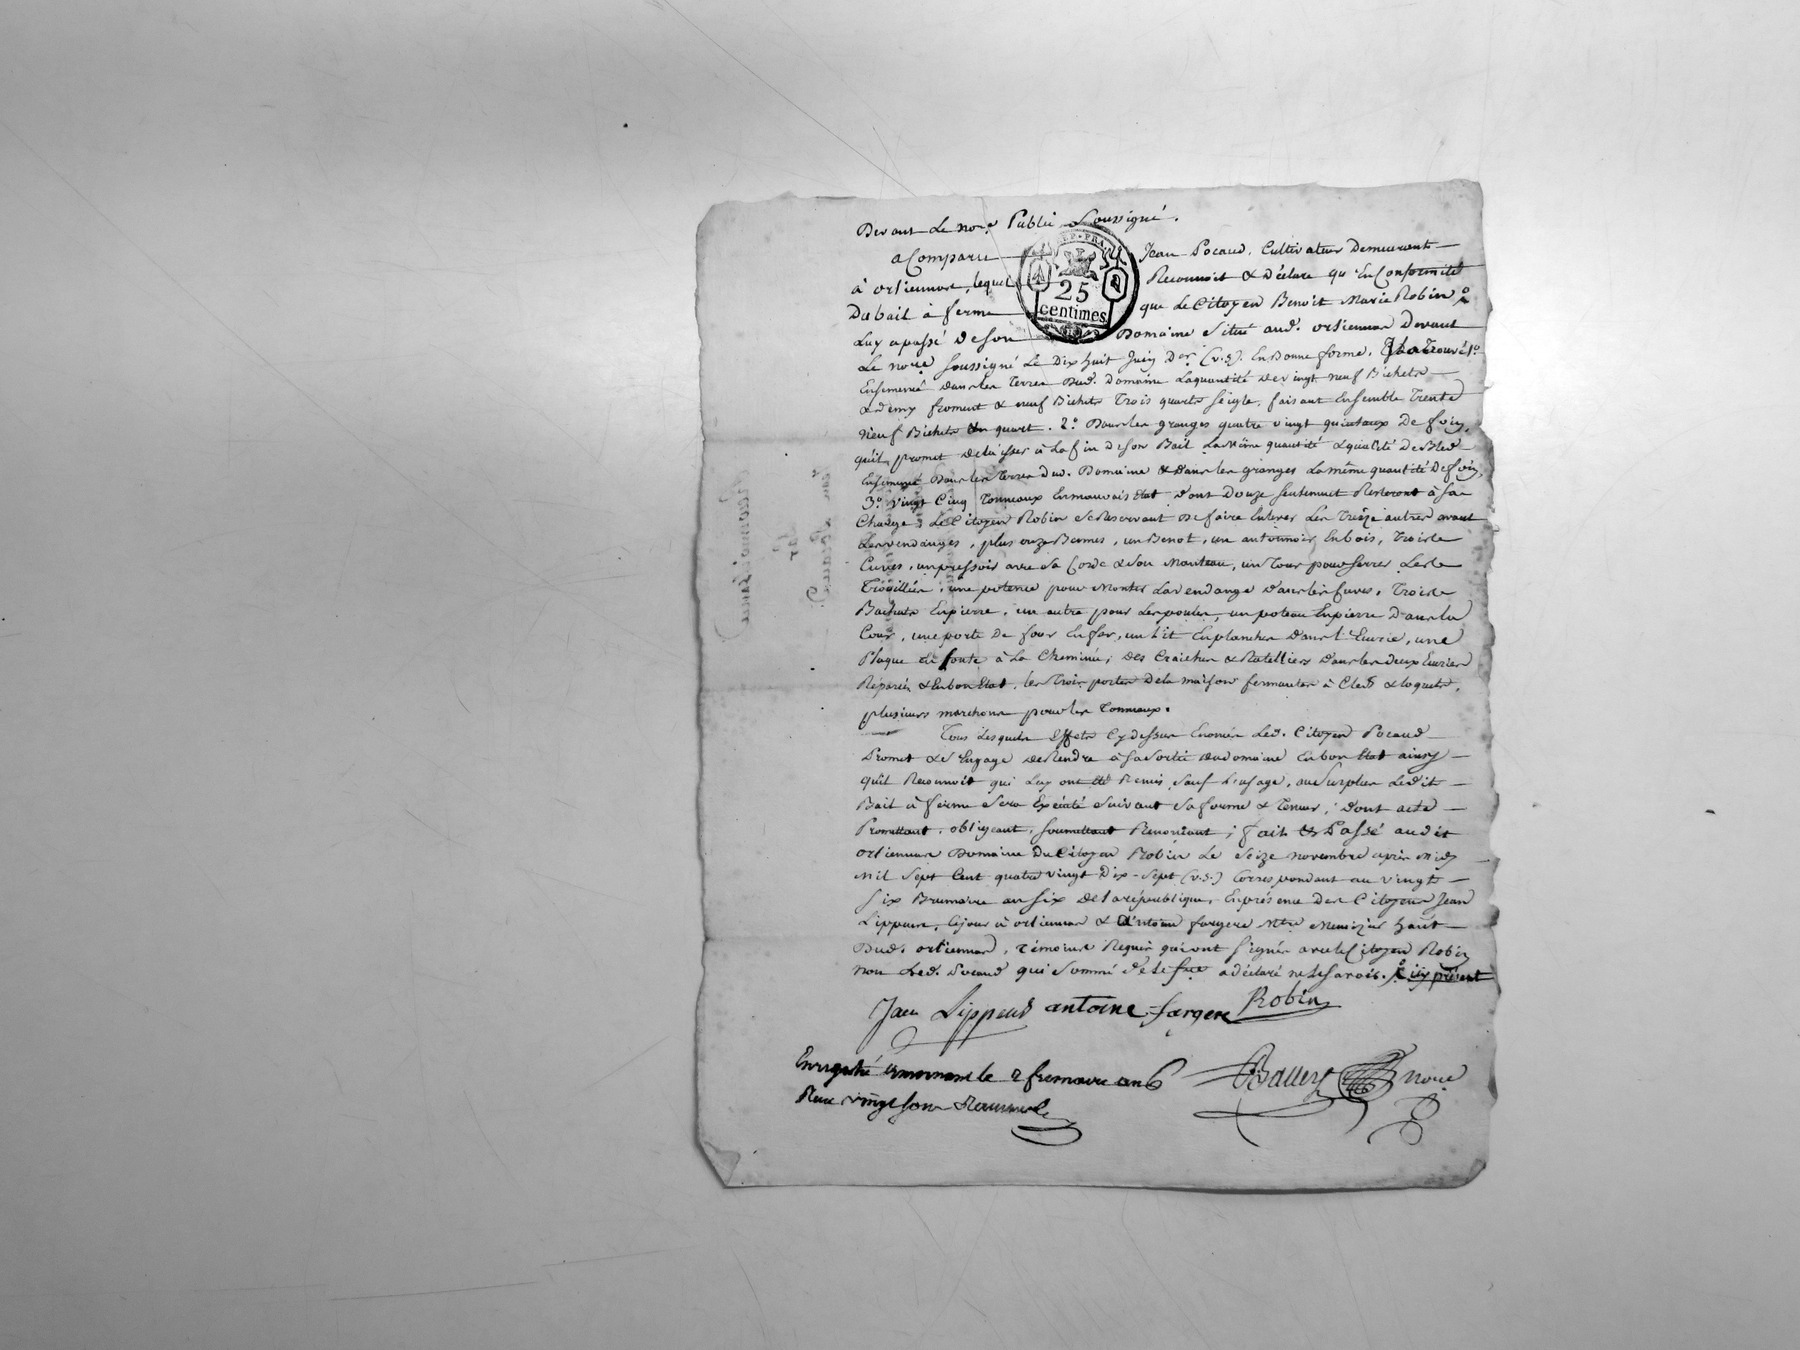 Devant Le no.re Public Soussigné.
a Comparu Jean Pocaud, Cultivateur Demeurant
à orliennas, lequel Reconnoit & Déclare qu'En Conformité
Du bail à ferme que Le Citoyen Benoit Marie Robin
Luy a passé de son Domaine Situé aud. orliennas Devant
Le no.re soussigné Le Dix huit Juin Der (v.s). En Bonne forme. Il a Trouvé 1.°
Ensemencé dans les Terres Dud. Domaine La quantité de vingt neuf Bichets
& demy froment & neuf Bichets Trois quarts seigle, faisant Ensemble Trente
Neuf Bichets un quart. 2.° Dans les granges quatre vingt quintaux De foin,
qu'il promet de laisser à la fin de son Bail La Même quantité & qualité de Bled
Ensemencé Dans les Terres Dud. Domaine & Dans les granges La même quantité De foin,
3.° vingt Cinq Tonneaux En mauvais Etat dont Douze seulement Resteront à sa
Charge ; Le Citoyen Robin se Reservant de faire Enlever Les Treize autres avant
Les vendanges, plus onze Bennes, un Benot, un antonnoir En bois, Trois
Cuves, un pressoir avec sa Corde & Son Manteau, un Tour pour serrer,
une potence pour Monter La vendange dans les Cuves, Trois
Bachats En pierre, un autre pour Les poules, un poteau En pierre Dans la
Cour, une porte De four En fer, un Lit En planches dans l'Ecurie, une
Plaque de fonte à La Cheminée, Des Craiches & Ratelliers Dans les deux Ecuries
Reparés & En bon Etat, les Trois portes de la maison fermantes à Clefs & loquets,
plusieurs marchons pour les Tonneaux.
Tous Lesquels Effets Cy dessus Enoncés Led. Citoyen Pocaud
Promet & S'Engage de Rendre à sa Sortie du domaine En bon Etat ainsy
qu'il Reconnoit qui Luy ont été Remis, sauf L'usage, au Surplus Ledit
Bail à ferme Sera Exécuté Suivant Sa forme & Teneur ; dont acte
Promettant, obligeant, soumettant Renonçant ; fait & Passé audit
orliennas Domaine Du Citoyen Robin Le Seize novembre après midy
Mil Sept Cent quatre vingt Dix-Sept (v.s.) Correspondant au vingt
Six Brumaire an Six de la république, En présence Des Citoyens Jean
Lippaud, à orliennas & Antoine fargere Mtre Menuizier
Dud. orliennas, Témoins Requis qui ont Signé avec le Citoyen Robin
non Led. Pocaud qui Sommé de le fre a déclaré ne le Savoir. icy présent
Jean Lippaud antoine fargere Robin
Enregistré a mornant le 2 frimaire an 6
Balley no.re
Reçu vingt sous
REP. FRA.
25
centimes